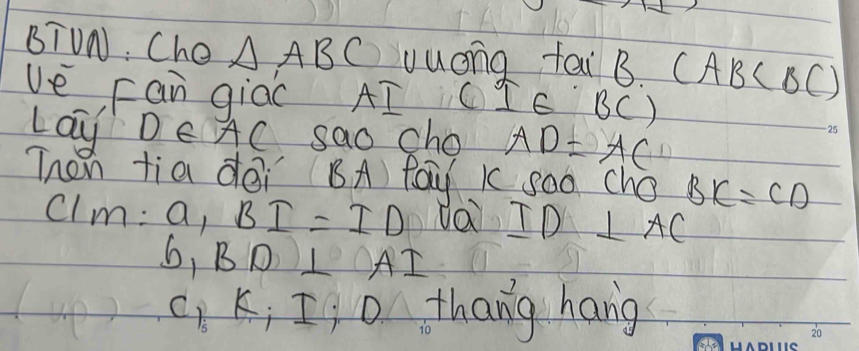 BTVN: Cho Δ ABC vuông tại B. (AB<BC)
Vẽ Fân giác AI (I ∈ BC)
Lấy D ∈ AC sao cho AD = AC
Trên tia đối BA lấy K sao cho BK = CD
C/m: a, BI = ID và ID ⊥ AC
b, BD ⊥ AI
c, K; I; D thẳng hàng
25
5 10 15 20
HAPLUS